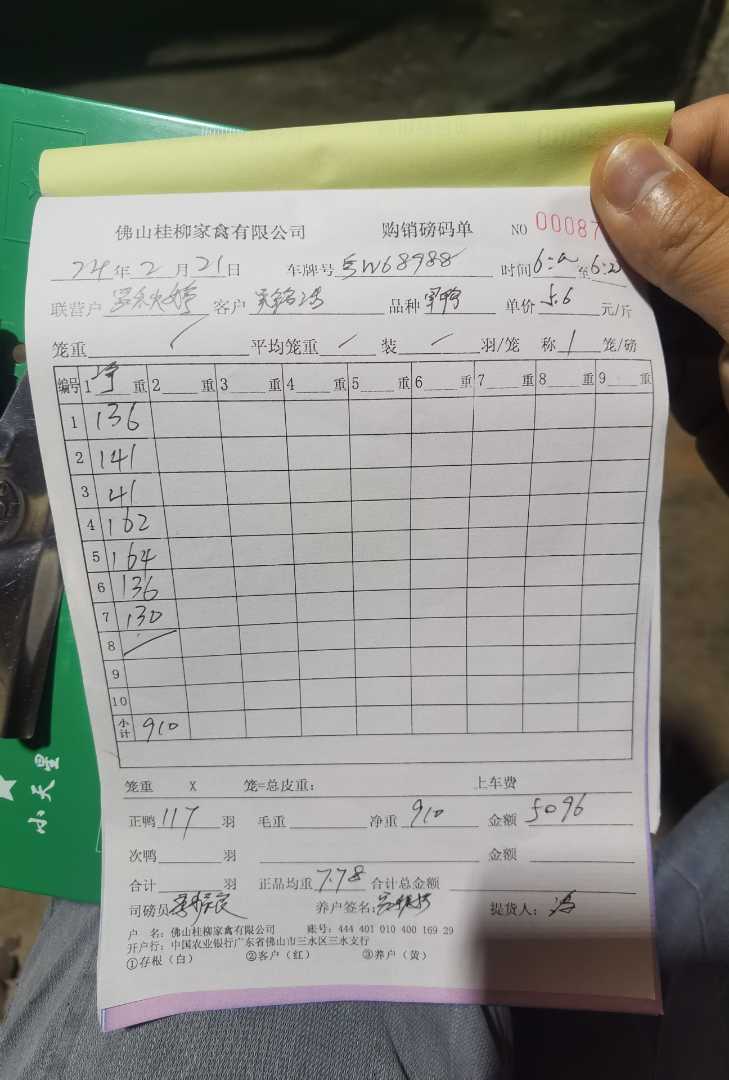 佛山桂柳家禽有限公司 购销磅码单 NO 00087
24年2月21日 车牌号 W68988 时间6: 至6:20
联营户 客户 品种 单价5.6元/斤
笼重 平均笼重 装 羽/笼 称1笼/磅
编号 1净重 2 重 3 重 4 重 5 重 6 重 7 重 8 重 9 重
1 136
2 141
3 41
4 162
5 164
6 136
7 130
8
9
10
小计 910
笼重 X 笼=总皮重: 上车费
正鸭117羽 毛重 净重910 金额5096
次鸭 羽 金额
合计 羽 正品均重7.78 合计总金额
司磅员 养户签名: 提货人:
户 名: 佛山桂柳家禽有限公司 账号: 444 401 010 400 169 29
开户行: 中国农业银行广东省佛山市三水区三水支行
①存根(白) ②客户(红) ③养户(黄)
小天星